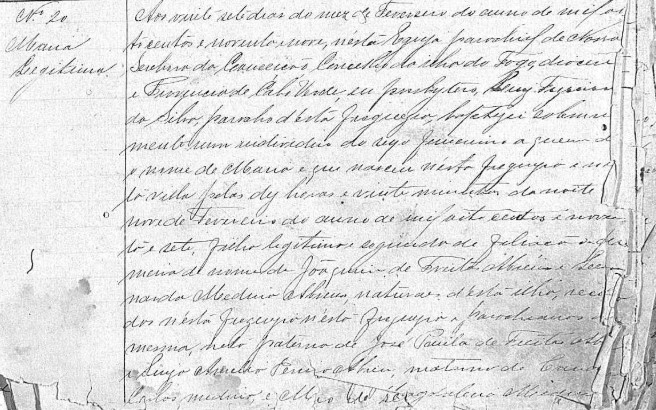 Nº 20
Maria
Legitima.
Aos vinte sete dias do mez de Fevereiro do anno de mil oi
tocentos e noventa nove, nesta Egreja parochial de Nossa
Senhora da Conceicão, Concelho da ilha do Fogo, diocese
e Provincia de Cabo Verde, eu presbytero,
da Silva, parocho d'esta freguezia, baptizei solemne
mente um individuo do sexo femenino a quem d
o nome de Maria e que nasceu nesta freguezia e n
ta villa pelas dez horas e vinte minutos da noite
nove de Fevereiro do anno de mil oito centos e noven
ta e sete, filha legitima e segunda de
meira do nome de Joaquim de Freitas Abreu e
Medina Abreu, naturaes d'esta ilha,
dos n'esta freguezia n'esta freguezia e parochianos
mesma, neta paterna de José de Freitas Ab
Abreu, materna de
Carlos Medina, e